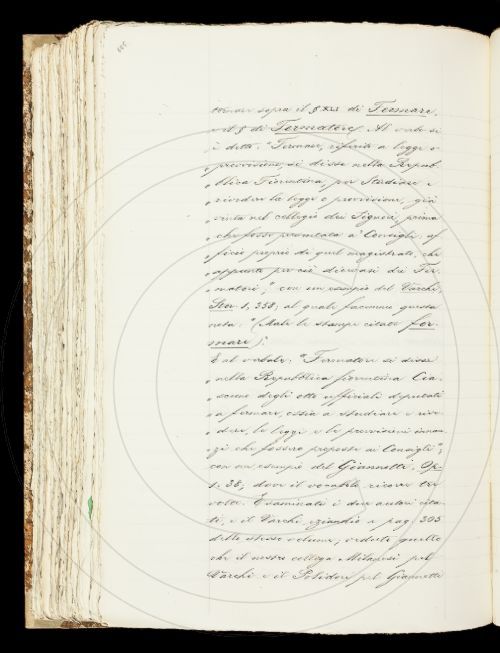 tornar sopra il § XLI di Fermare,
e al § di Fermatore. Al verbo si
è detto: "Fermare, riferito a legge o
„ provvisione, si disse nella Repub-
„ blica Fiorentina, per Studiare e
„ rivedere la legge o provvisione, già
„ vinta nel collegio dei Signori, prima
„ che fosse presentata a' Consigli; uf-
„ ficio proprio di quel magistrato, che
„ appunto per ciò dicevasi dei Fer-
„ matori;" con un esempio del Varchi,
Stor. 1, 358; al quale facemmo questa
nota: "(Male le stampe citate for-
mare)."
E al verbale: "Fermatore si disse
„ nella Repubblica fiorentina Cia-
„ scuno degli otto uffiziali deputati
„ a fermare, ossia a studiare e rive-
„ dere, le leggi e le provvisioni innan-
„ zi che fossero proposte ai Consigli";
con un esempio del Giannotti, Op.
1. 38, dove il vocabolo ricorre tre
volte. Esaminati i due autori cita-
ti, e il Varchi, eziandio a pag. 305
dello stesso volume, vedute quello
che il nostro collega Milanesi pel
Varchi e il Polidori pel Giannotti